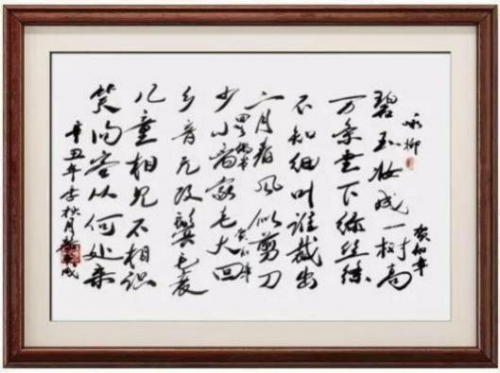 咏柳
贺知章
碧玉妆成一树高
万条垂下绿丝绦
不知细叶谁裁出
二月春风似剪刀
回乡偶书
贺知章
少小离家老大回
乡音无改鬓毛衰
儿童相见不相识
笑问客从何处来
辛丑年李秋月